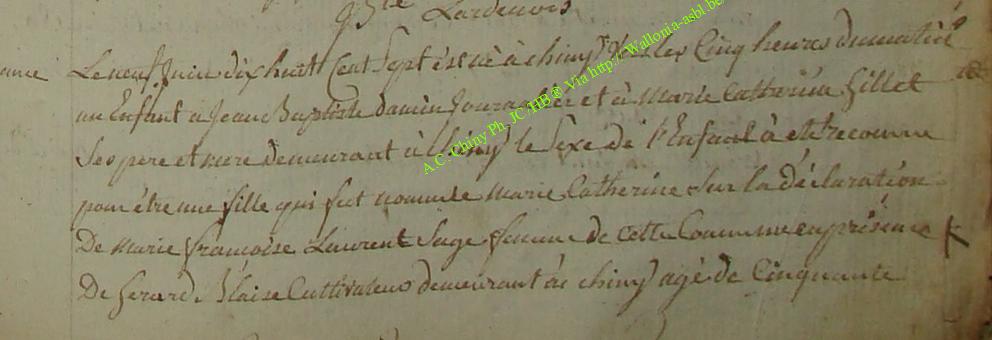 Bte Lardenois
ance Le neuf juin dix huit Cent Sept est né à chiny vers les Cinq heures du matin
un Enfant a Jean Baptiste damin Journalier et à Marie Catherine Gillet
Ses pere et mere demeurant à Chiny le Sexe de l'Enfant à eté reconnu
pour être une fille qui fut nommée Marie Catherine Sur la déclaration
De Marie françoise Laurent Sage femme de cette Commune en présence
De Gerard Blaise Cultivateur demeurant à chiny agé de Cinquante
A.C. Chiny Ph. JC HB ® Via http:// Wallonia-asbl.be